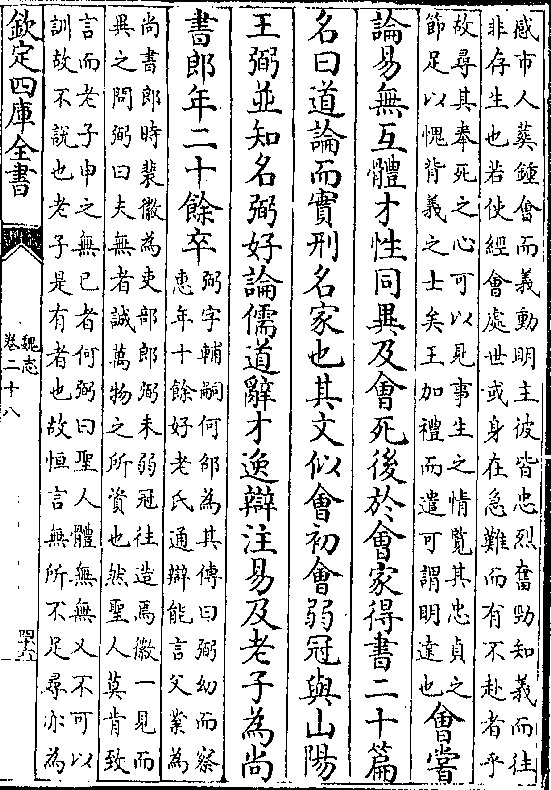 感市人葬鍾會而義動明主彼皆忠烈奮勁知義而往
非存生也若使經會處世或身在急難而有不赴者乎
故尋其奉死之心可以見事生之情覽其忠貞之
節足以愧背義之士矣王加禮而遣可謂明達也
會嘗
論易無互體才性同異及會死後於會家得書二十篇
名曰道論而實刑名家也其文似會初會弱冠與山陽
王弼並知名弼好論儒道辭才逸辯注易及老子為尚
書郎年二十餘卒
弼字輔嗣何邵為其傳曰弼幼而察
惠年十餘好老氏通辯能言父業為
尚書郎時裴徽為吏部郎弼未弱冠往造焉徽一見而
異之問弼曰夫無者誠萬物之所資也然聖人莫肯致
言而老子申之無已者何弼曰聖人體無無又不可以
訓故不說也老子是有者也故恒言無所不足尋亦為
欽定四庫全書
魏志
卷二十八